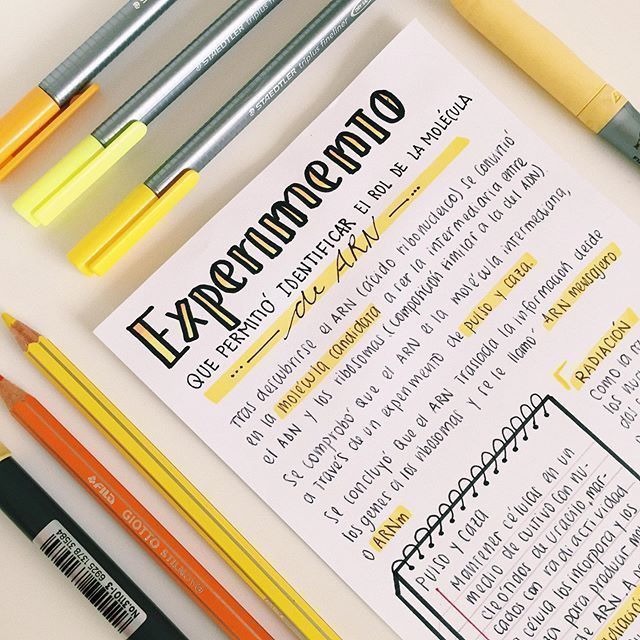 STAEDTLER triplus fineliner
STAEDTLER triplus fineliner
STAEDTLER
Experimento
QUE PERMITIÓ IDENTIFICAR EL ROL DE LA MOLÉCULA
... — de ARN — ...
Tras descubrirse el ARN (ácido ribonucleico) se convirtió
en la molécula candidata a ser la intermediaria entre
el ADN y los ribosomas (composición similar a la del ADN).
Se comprobó que el ARN es la molécula intermediaria,
a través de un experimento de pulso y caza.
Se concluyó que el ARN traslada la información desde
los genes a los ribosomas y se le llamó ARN mensajero
o ARNm
RADIACÓN
Como la
los nu
da
Pulso y caza
Mantener células en un
medio de cultivo con nu-
cleótidos de uracilo mar-
cados con radiactividad.
célula los incorpora y los
para producir
ARN. A
FILA
GIOTTO
No.3110-3 6925 1578 35384